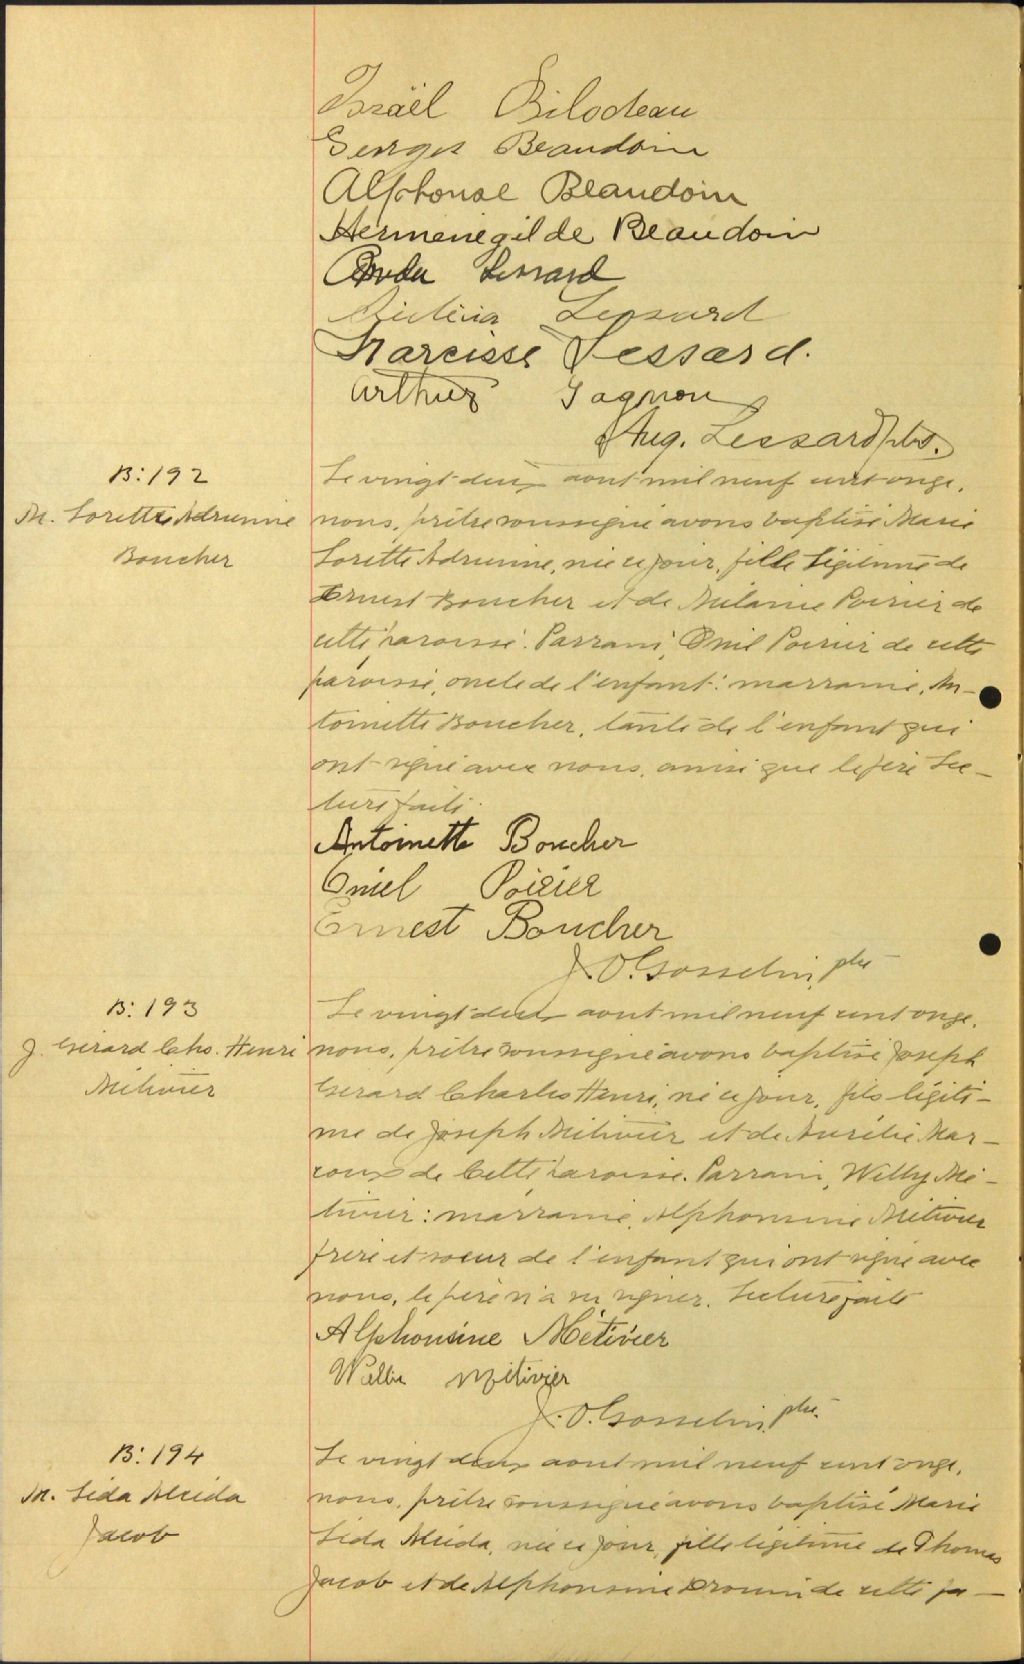 Israël Bilodeau
Georges Beaudoin
Alphonse Beaudoin
Hermenegilde Beaudoin
Lessard
Lessard
Narcisse Lessard.
Arthur Gagnon
Aug. Lessard ptre.
B: 192
M. Lorette Adrienne
Boucher
Le vingt-deux aout mil neuf cent onze,
nous, prêtre soussigné avons baptisé Marie
Lorette Adrienne, née ce jour, fille légitime de
Ernest Boucher et de Mélanie Poirier de
cette paroisse. Parrain, Omil Poirier de cette
paroisse, oncle de l'enfant: marraine, An-
toinette Boucher, tante de l'enfant qui
ont signé avec nous, ainsi que le père Lec-
ture faite.
Antoinette Boucher
Omiel Poirier
Ernest Boucher
J. O. Gosselin, ptre
B: 193
J. Gérard Chs. Henri
Métivier
Le vingt-deux aout mil neuf cent onze,
nous, prêtre soussigné avons baptisé Joseph
Gerard Charles Henri, né ce jour, fils légiti-
me de Joseph Métivier et de Aurélie Mar-
coux de Cette paroisse. Parrain, Willy Mé-
tivier: marraine, Alphonsine Métivier
frère et soeur de l'enfant qui ont signé avec
nous, le père n'a su signer. Lecture faite
Alphonsine Métivier
Willie Métivier
J. O. Gosselin, ptre.
B: 194
M. Léda Aléida
Jacob
Le vingt deux aout mil neuf cent onze,
nous, prêtre soussigné avons baptisé Marie
Léda Aléida, née ce jour, fille légitime de Thomas
Jacob et de Alphonsine Drouin de cette pa-